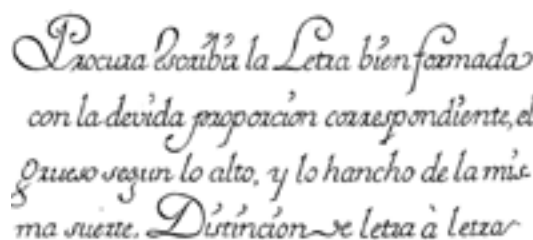 Procura Escribir la Letra bien formada
con la devida proporcion correspondiente, el
grueso segun lo alto, y lo hancho de la mis
ma suerte. Distincion de letra à letra